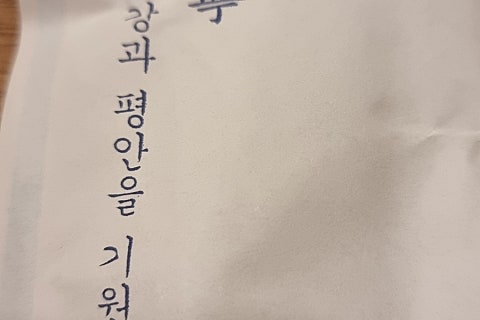 강과 평안을 기원